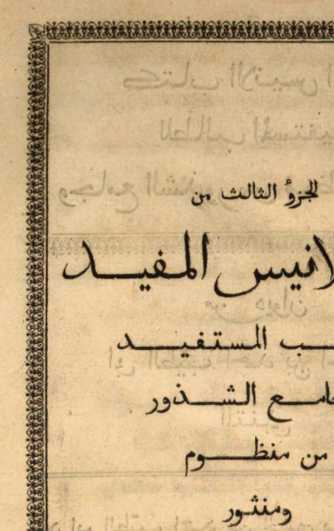 الجزؤ الثالث من
لانيس المفيد
ـب المستفيد
امع الشذور
من منظوم
ومنثور